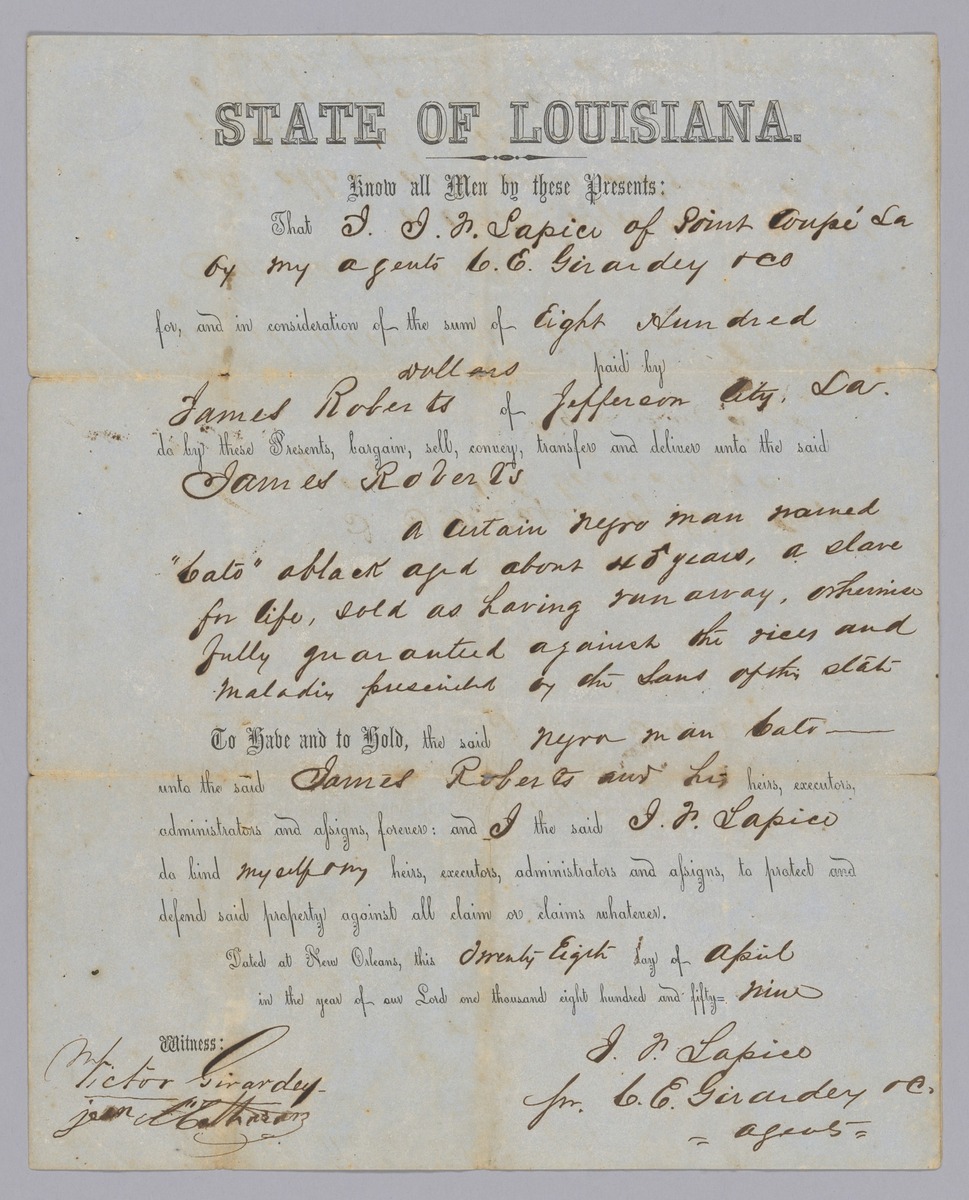 STATE OF LOUISIANA.
Know all Men by these Presents:
That I. J. F. Lapice of Point Coupé La
by my agents C. E. Girardey & Co
for, and in consideration of the sum of Eight Hundred
dollars paid by
James Roberts of Jefferson City, La.
do by these Presents, bargain, sell, convey, transfer and deliver unto the said
James Roberts
a certain negro man named
"Cato" a black aged about 45 years, a slave
for life, sold as having run away, otherwise
fully guaranteed against the vices and
Maladies prescribed by the Laws of this state
To Have and to Hold, the said negro man Cato
unto the said James Roberts and his heirs, executors,
administrators and assigns, forever: and I the said J. F. Lapice
do bind myself & my heirs, executors, administrators and assigns, to protect and
defend said property against all claim or claims whatever.
Dated at New Orleans, this Twenty Eigth day of April
in the year of our Lord one thousand eight hundred and fifty= nine
Witness:
Victor Girardey
jean
J. F. Lapice
pr. C. E. Girardey & C.
= agents =